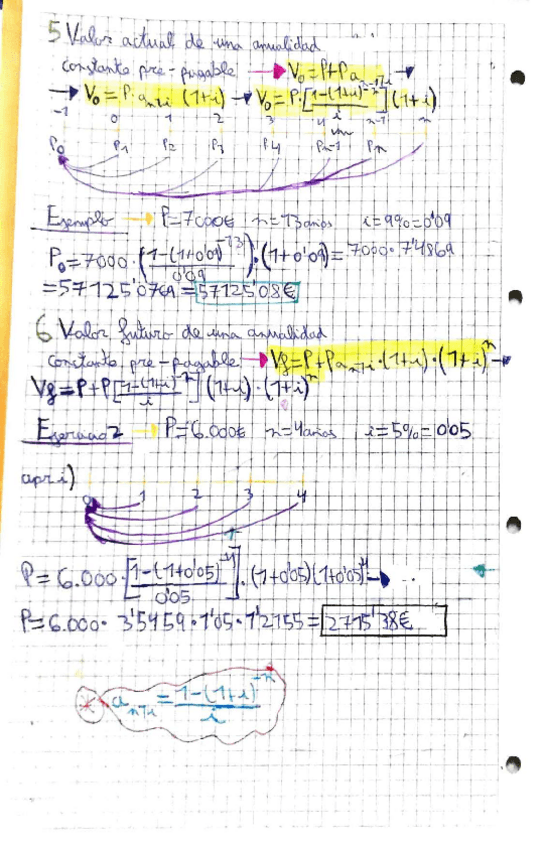 5 Valor actual de una anualidad
constante pre-pagable → V₀=P+Pa n-1┐i →
→ V₀=P·a n┐i (1+i) → V₀=P·[1-(1+i)^-n / i] (1+i)
-1 0 1 2 3 4 n-1 n
P₀ P₁ P₂ P₃ P₄ Pn-1 Pn
Ejemplo → P=7000€ n=13años i=9%=0'09
P₀=7000·(1-(1+0'09)^-13 / 0'09)·(1+0'09)=7000·7'4869
=57125'0769=57125'08€
6 Valor futuro de una anualidad
constante pre-pagable → Vf=P+Pa n-1┐i·(1+i)·(1+i)^n →
Vf=P+P[1-(1+i)^-n / i] (1+i)·(1+i)^n
Ejercicio 2 → P=6.000€ n=4años i=5%=0'05
apr.i)
0 1 2 3 4
P=6.000·[1-(1+0'05)^-4 / 0'05]·(1+0'05)(1+0'05)^4 →
P=6.000·3'5459·1'05·1'2155=2715'38€
* a n┐i = 1-(1+i)^-n / i